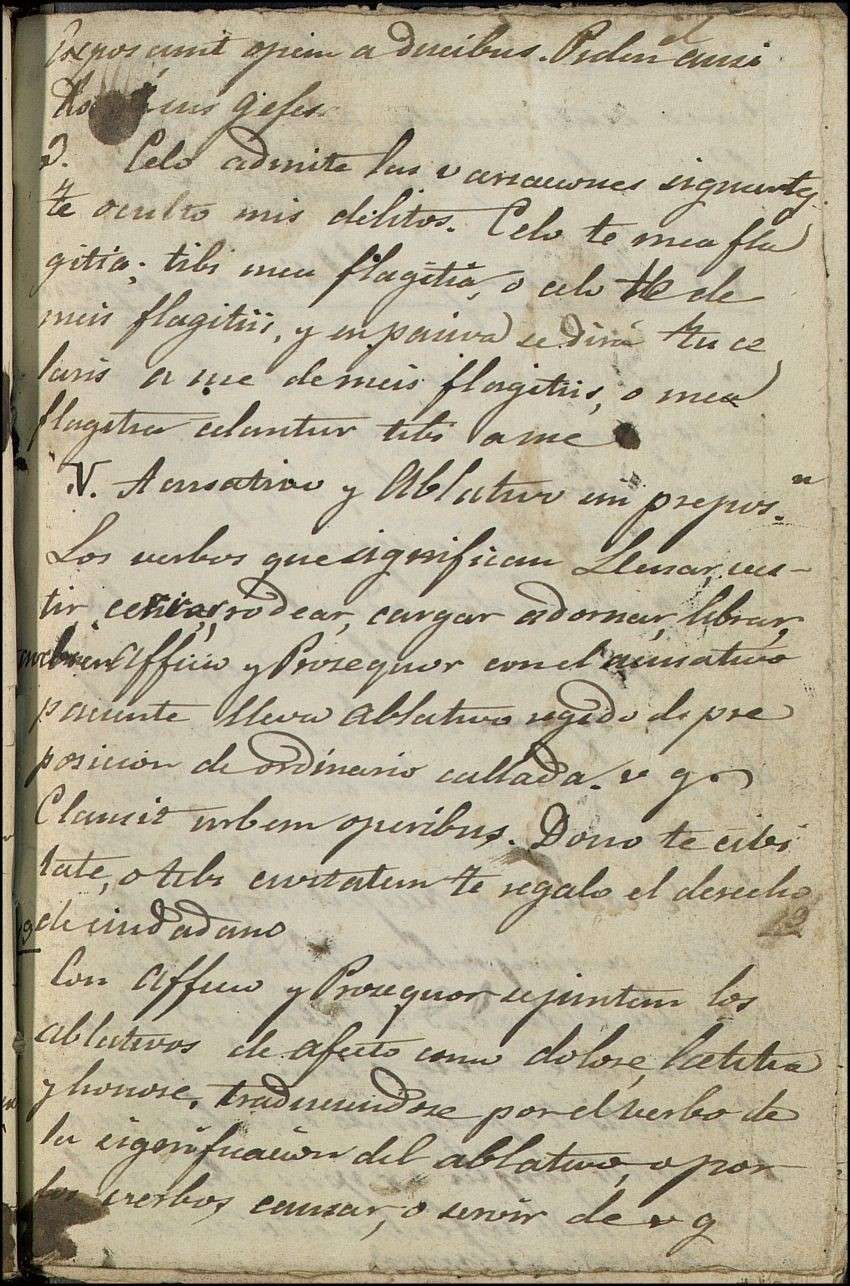 Exposcunt opem a ducibus. Piden el auxi
sus gefes.
2. Celo admite las variaciones siguientes
te oculto mis delitos. Celo te mea fla
gitia; tibi mea flagitia, o celo te de
meis flagitiis, y en pasiva se dirá tu ce
laris a me de meis flagitiis, o mea
flagitia celantur tibi a me
V. Acusativo y Ablativo sin prepos.n
Los verbos que significan Llenar, ves-
tir, cerrar, rodear, cargar adornar, librar,
Afficio y Prosequor con el acusativo
paciente lleva Ablativo regido de pre
posicion de ordinario callada. v g.
Clausit urbem operibus. Dono te civi
tate, o tibi civitatem te regalo el derecho
de ciudadano
Con Afficio y Prosequor se juntan los
ablativos de afecto como dolore, laetitia
y honore, traduciendose por el verbo de
la significacion del ablativo, o por
los verbos causar, o servir de v g